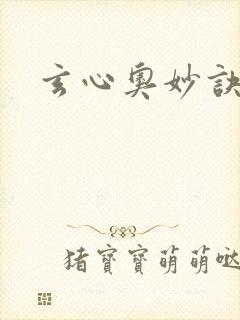 玄心奧妙訣
猪寶寶萌萌噠